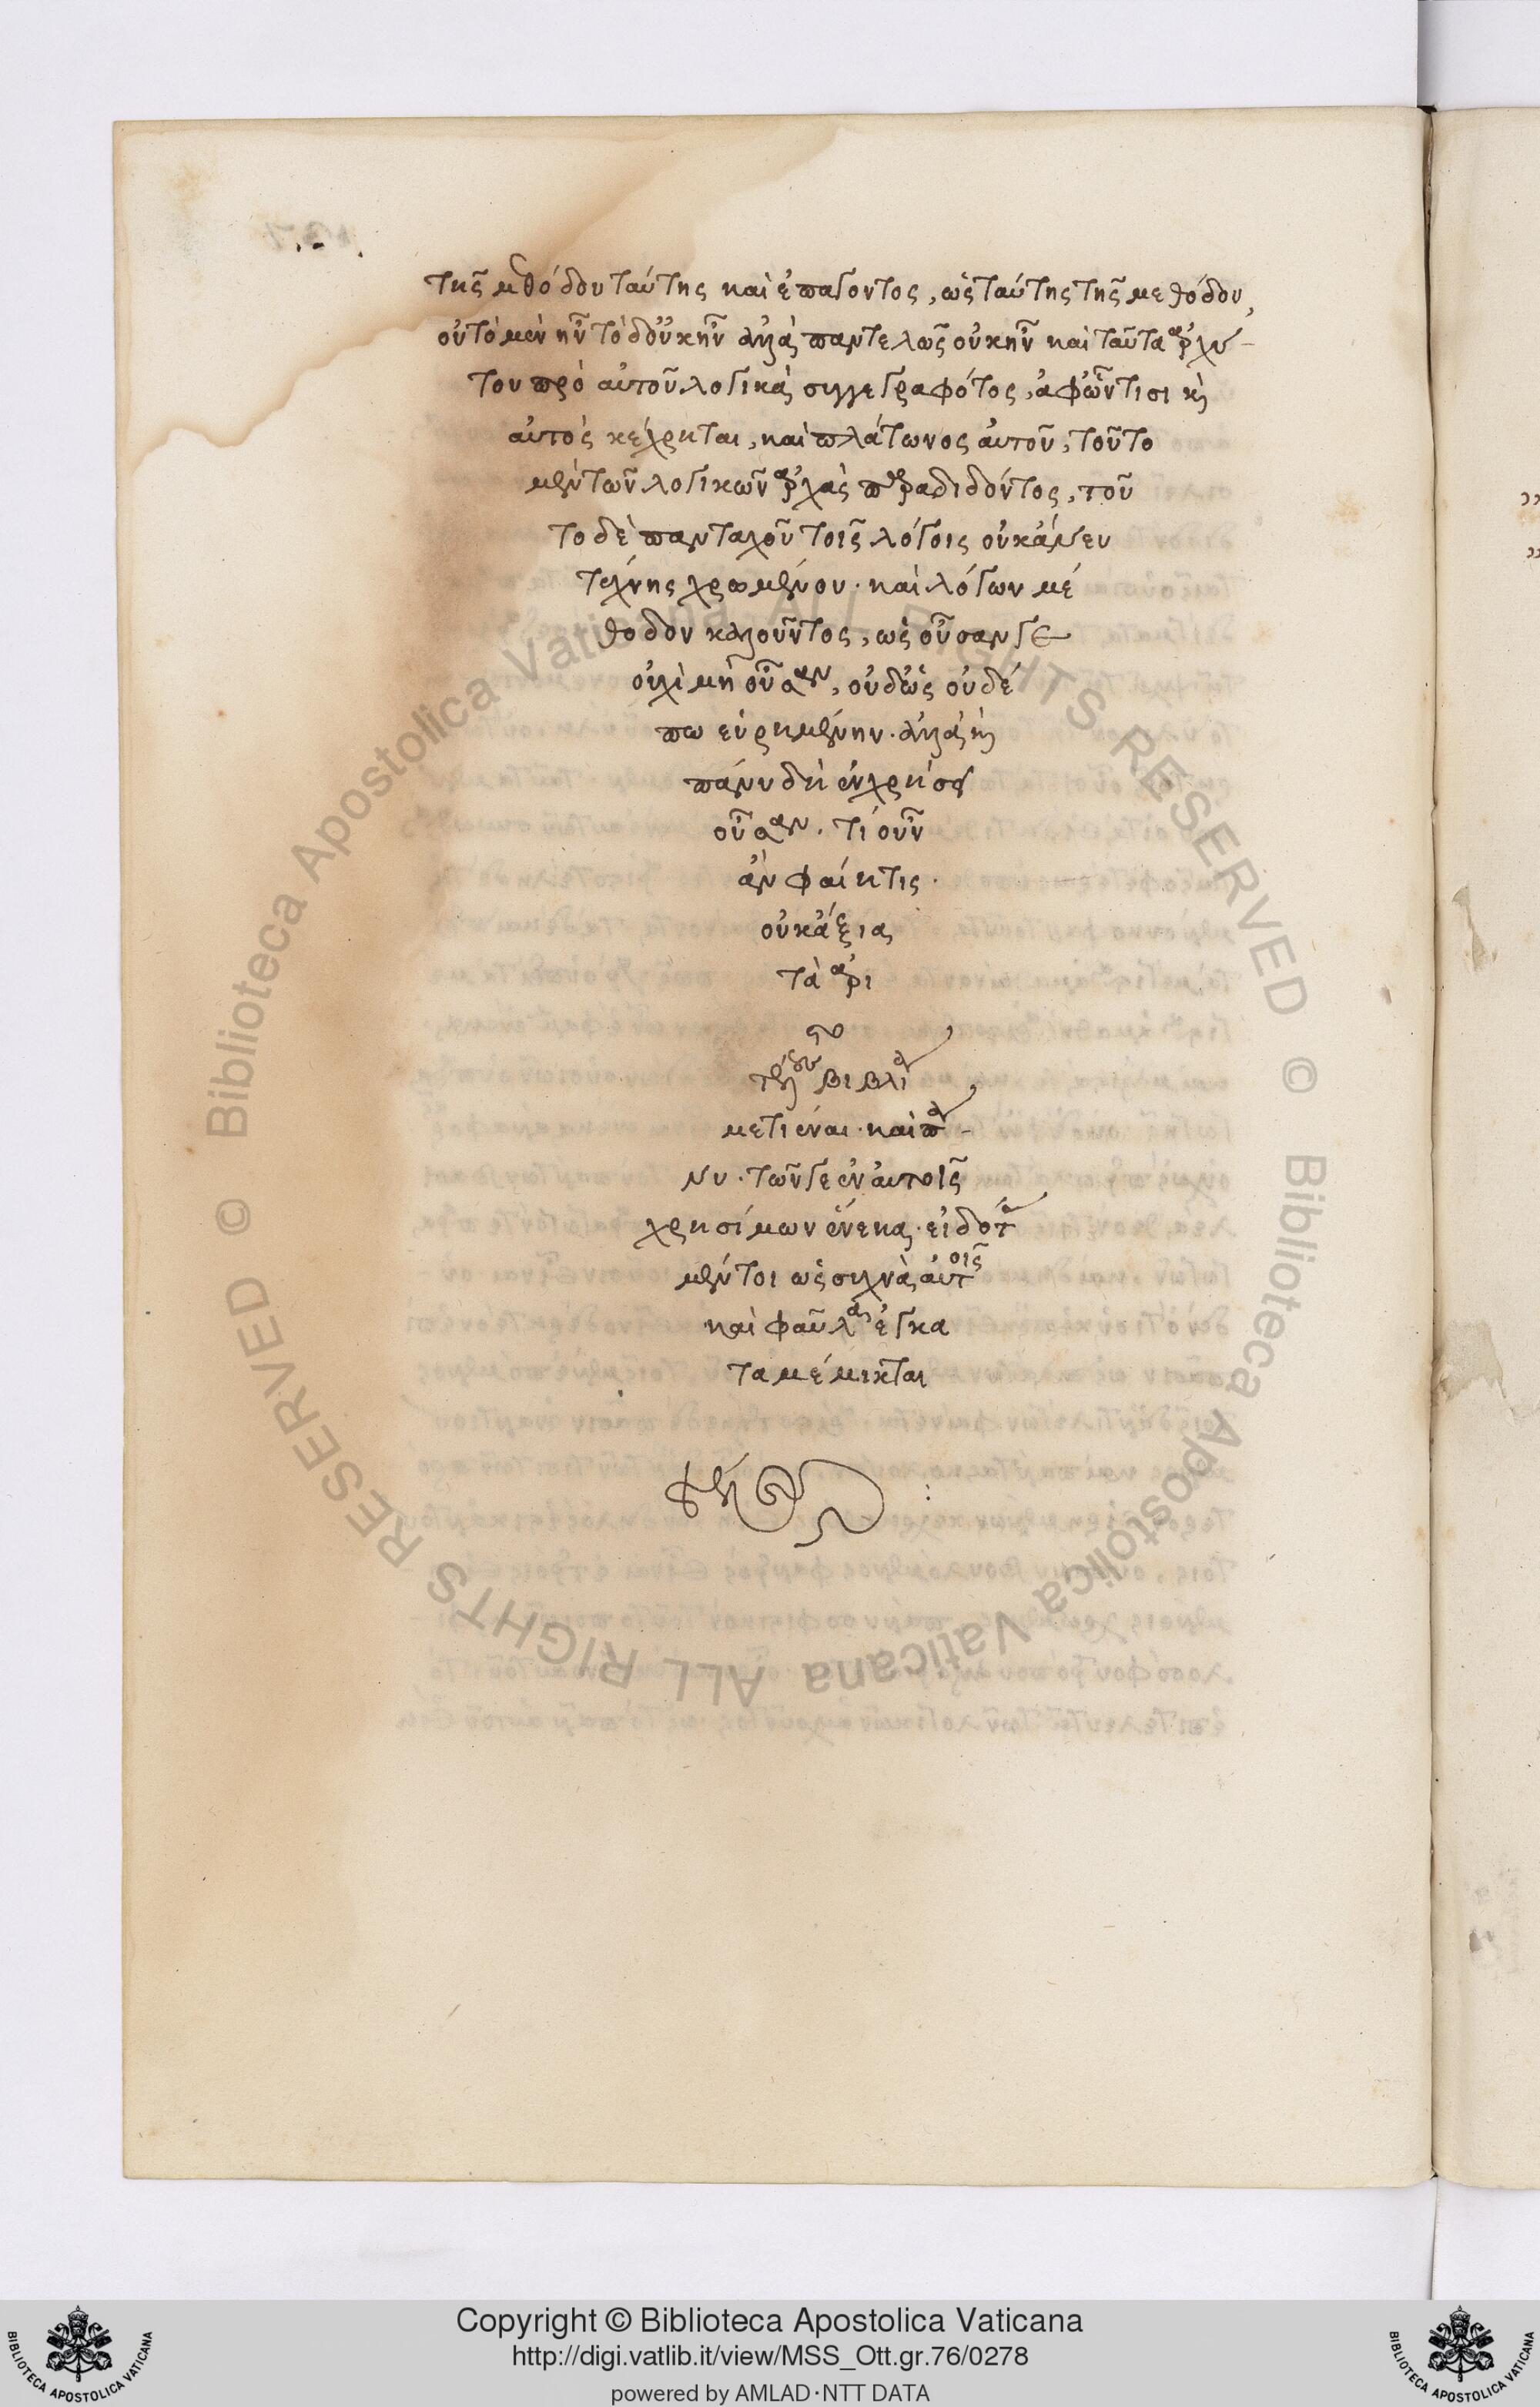 τῆς μεθόδου ταύτης καὶ ἐπάγοντος, ὡς ταύτης τῆς μεθόδου,
οὐ τὸ μὲν ἦν τὸ δ' οὐκ ἦν ἀλλὰ παντελῶς οὐκ ἦν καὶ ταῦτα ἀρχύ-
του πρὸ αὐτοῦ λογικὰ συγγεγραφότος, ἀφ' ὧν τισι κὶ
αὐτὸς κέχρηται, καὶ πλάτωνος αὐτοῦ, τοῦτο
μὲν τῶν λογικῶν ἀρχὰς παραδιδόντος, τοῦ
το δὲ πανταχοῦ τοῖς λόγοις οὐκ ἄνευ
τέχνης χρωμένου. καὶ λόγων μέ
θοδον καλοῦντος, ὡς οὖσαν γε
οὐχὶ μὴ οὖσαν, οὐδ' ὡς οὐδέ
πω εὑρημένην. ἀλλὰ κὶ
πάνυ δὴ ἐν χρήσει
οὖσαν. τί οὖν
ἂν φαίη τις.
οὐκ ἄξια
τὰ ἀρι
στο
τέλους βιβλία
μετιέναι. καὶ πά-
νυ. τῶν γε ἐν αὐτοῖς
χρησίμων ἕνεκα. εἰδότα
μέντοι ὡς συχνὰ αὐτοῖς
καὶ φαῦλα ἐγκα
ταμέμικται
Copyright © Biblioteca Apostolica Vaticana
http://digi.vatlib.it/view/MSS_Ott.gr.76/0278
powered by AMLAD·NTT DATA
BIBLIOTECA APOSTOLICA VATICANA
BIBLIOTECA APOSTOLICA VATICANA
© Biblioteca Apostolica Vaticana ALL RIGHTS RESERVED © Biblioteca Apostolica Vaticana ALL RIGHTS RESERVED